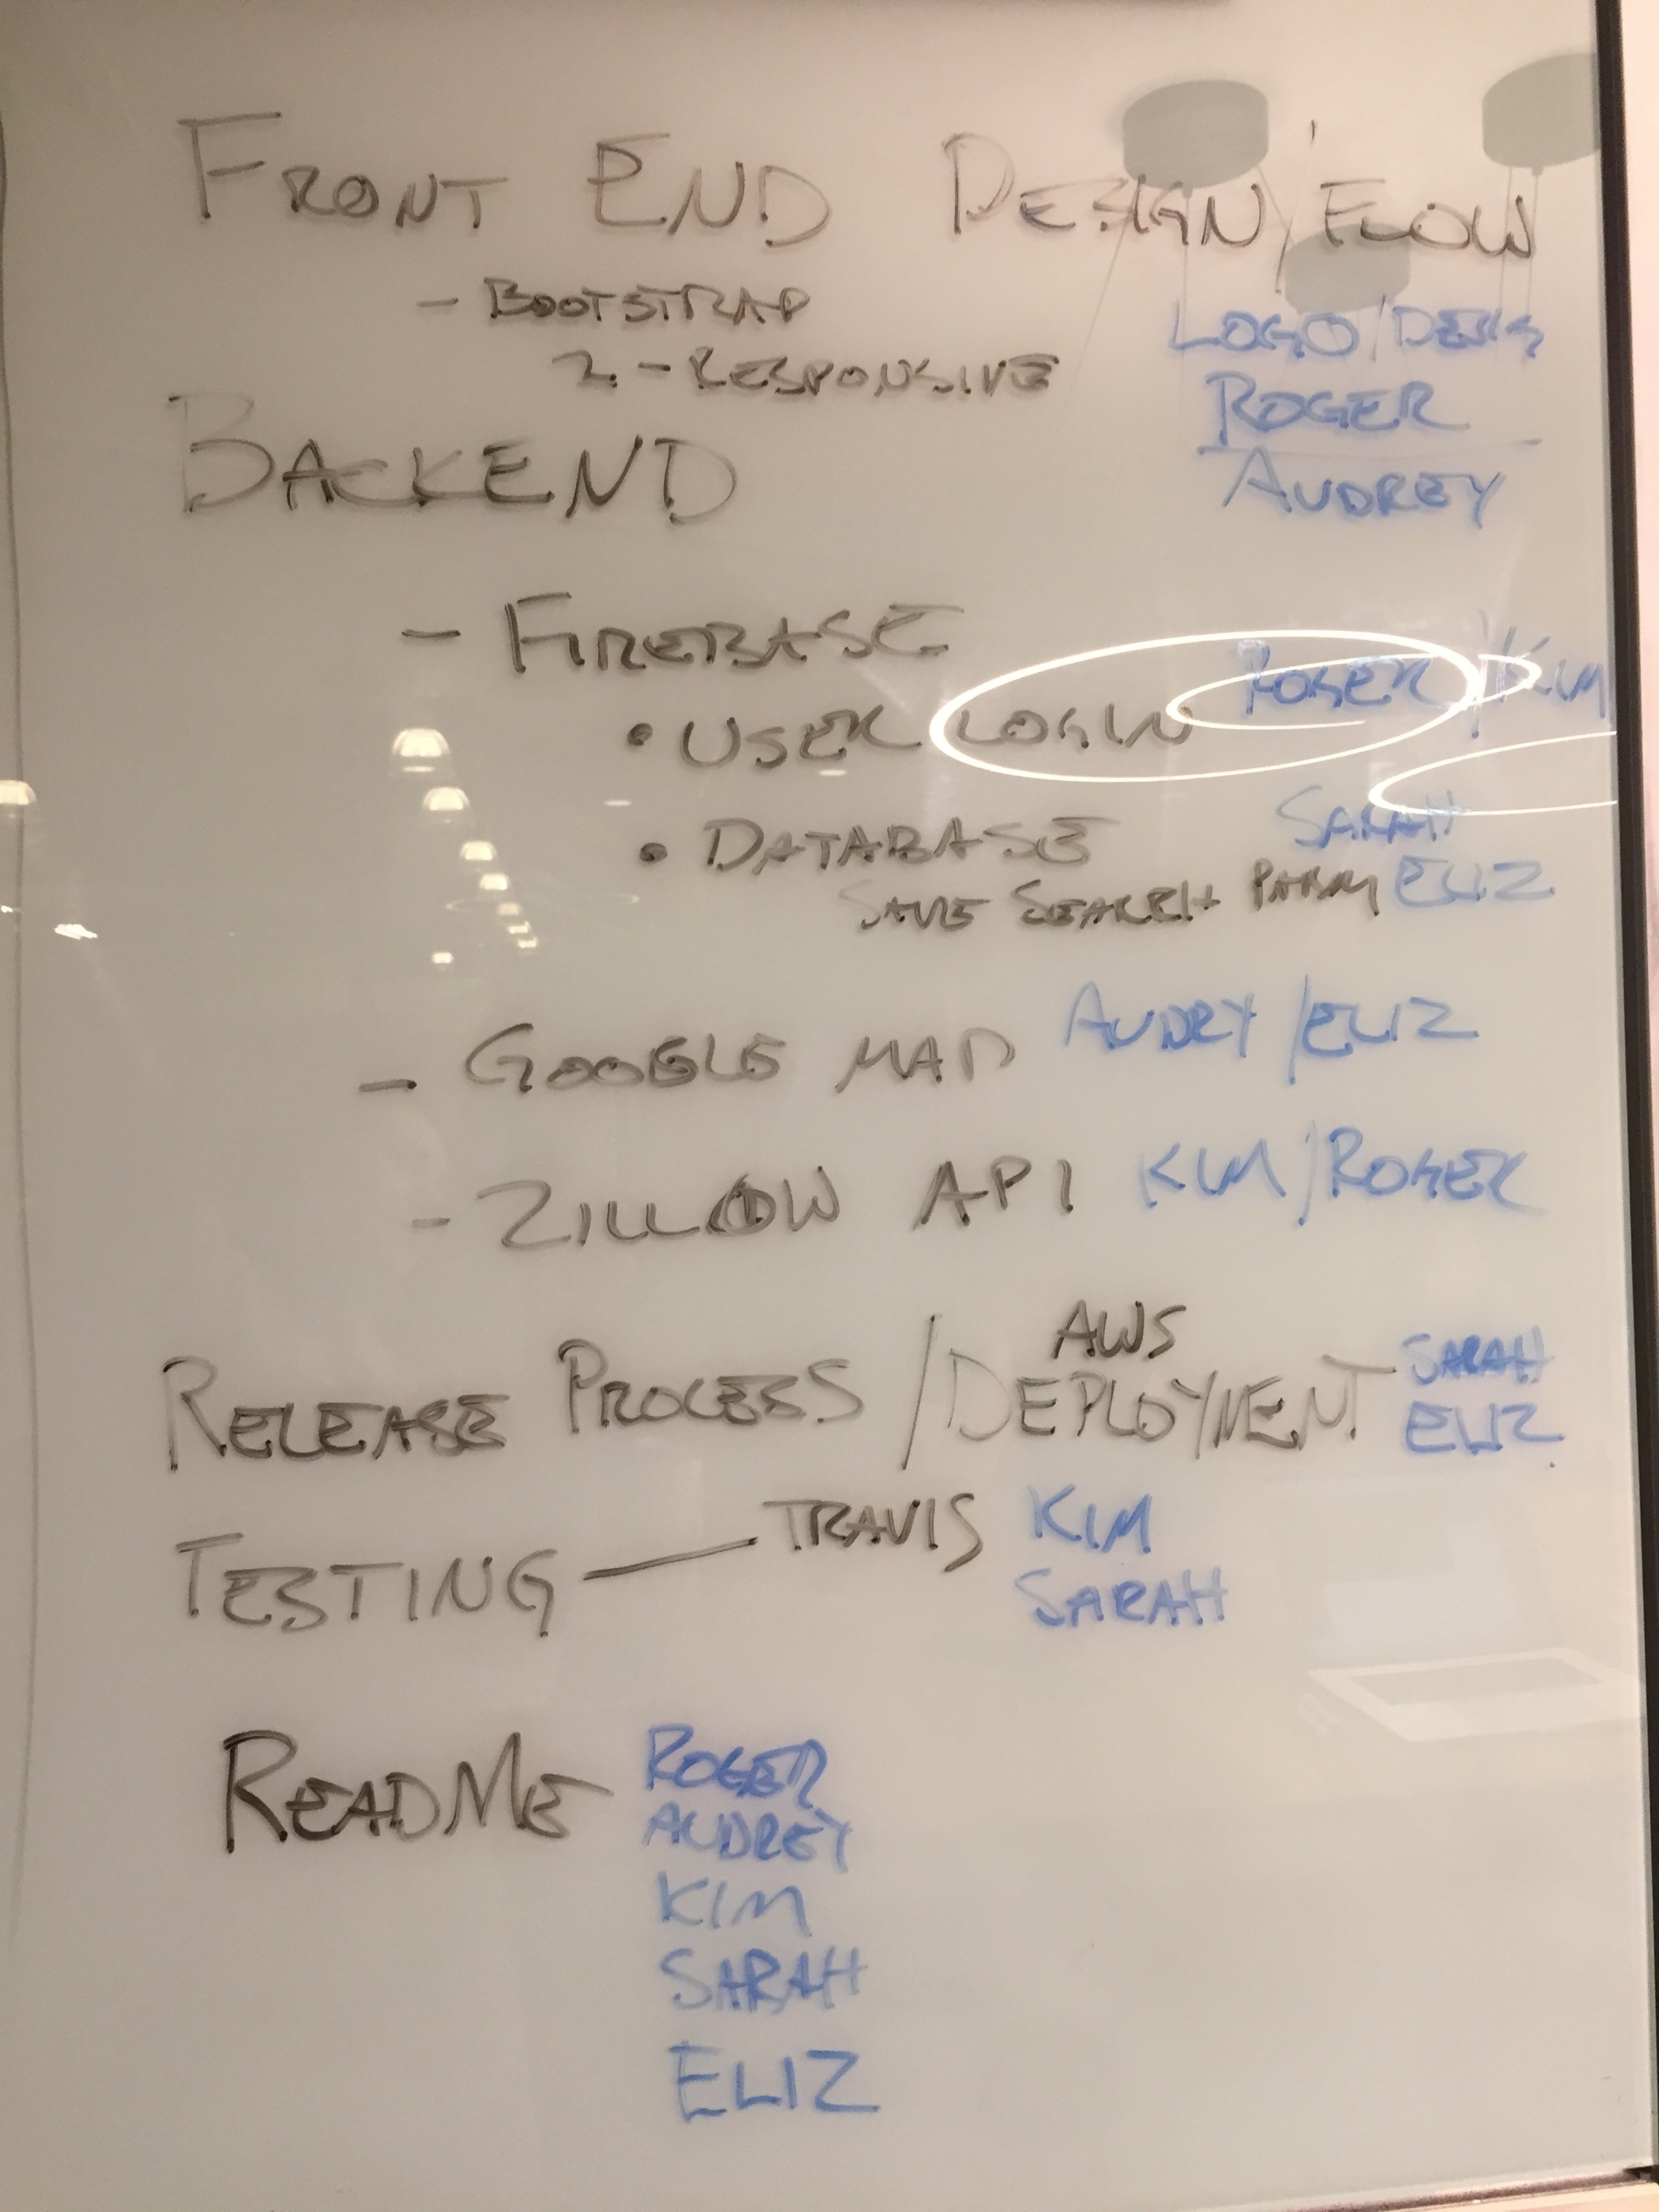 FRONT END DESIGN/FLOW
- BOOTSTRAP
2 - RESPONSIVE
LOGO/DESIG
ROGER
AUDREY
BACKEND
- FIREBASE
• USER LOGIN ROGER/KIM
• DATABASE SARAH
SAVE SEARCH PARM ELIZ
- GOOGLE MAP AUDRY/ELIZ
- ZILLOW API KIM/ROGER
AWS
RELEASE PROCESS/DEPLOYMENT SARAH
ELIZ
TESTING — TRAVIS KIM
SARAH
README ROGER
AUDREY
KIM
SARAH
ELIZ